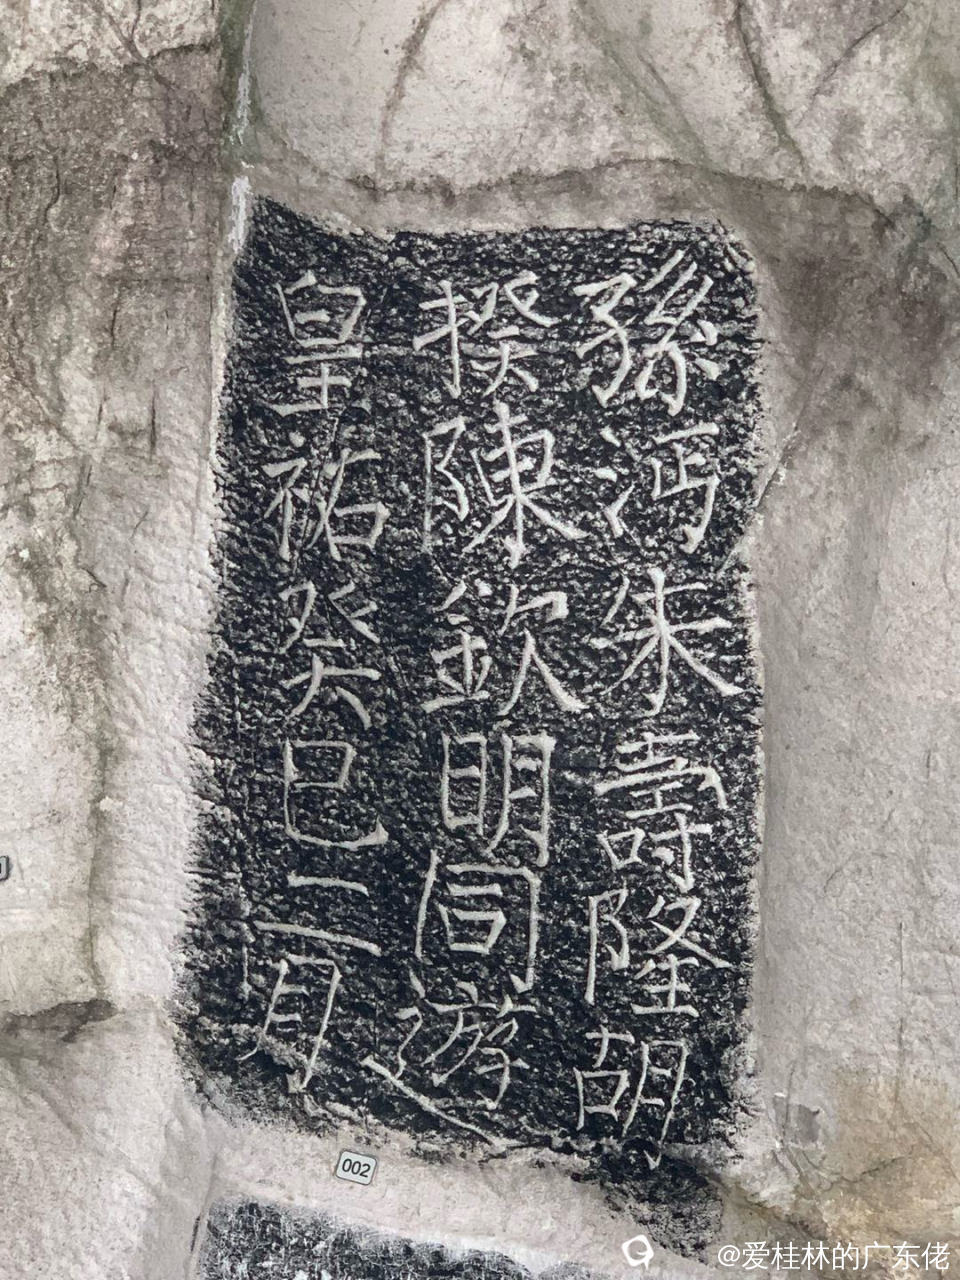 孫沔朱壽隆胡
揆陳欽明同遊
皇祐癸巳二月
002
@爱桂林的广东佬